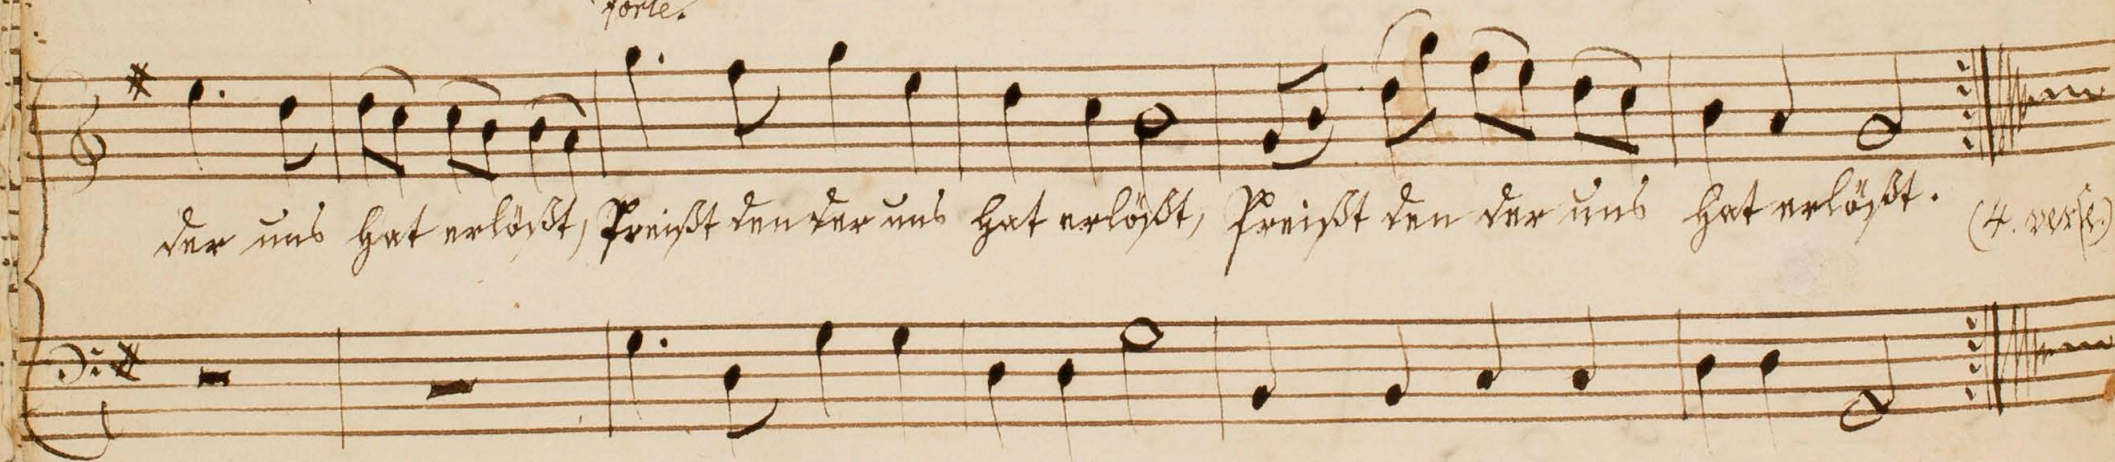 forte.
der uns hat erlößt, Preißt den der uns hat erlößt, Preißt den der uns hat erlößt. (4. verse.)